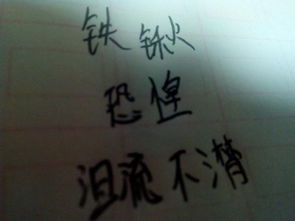 铁锹
恐惶
泪流不潸